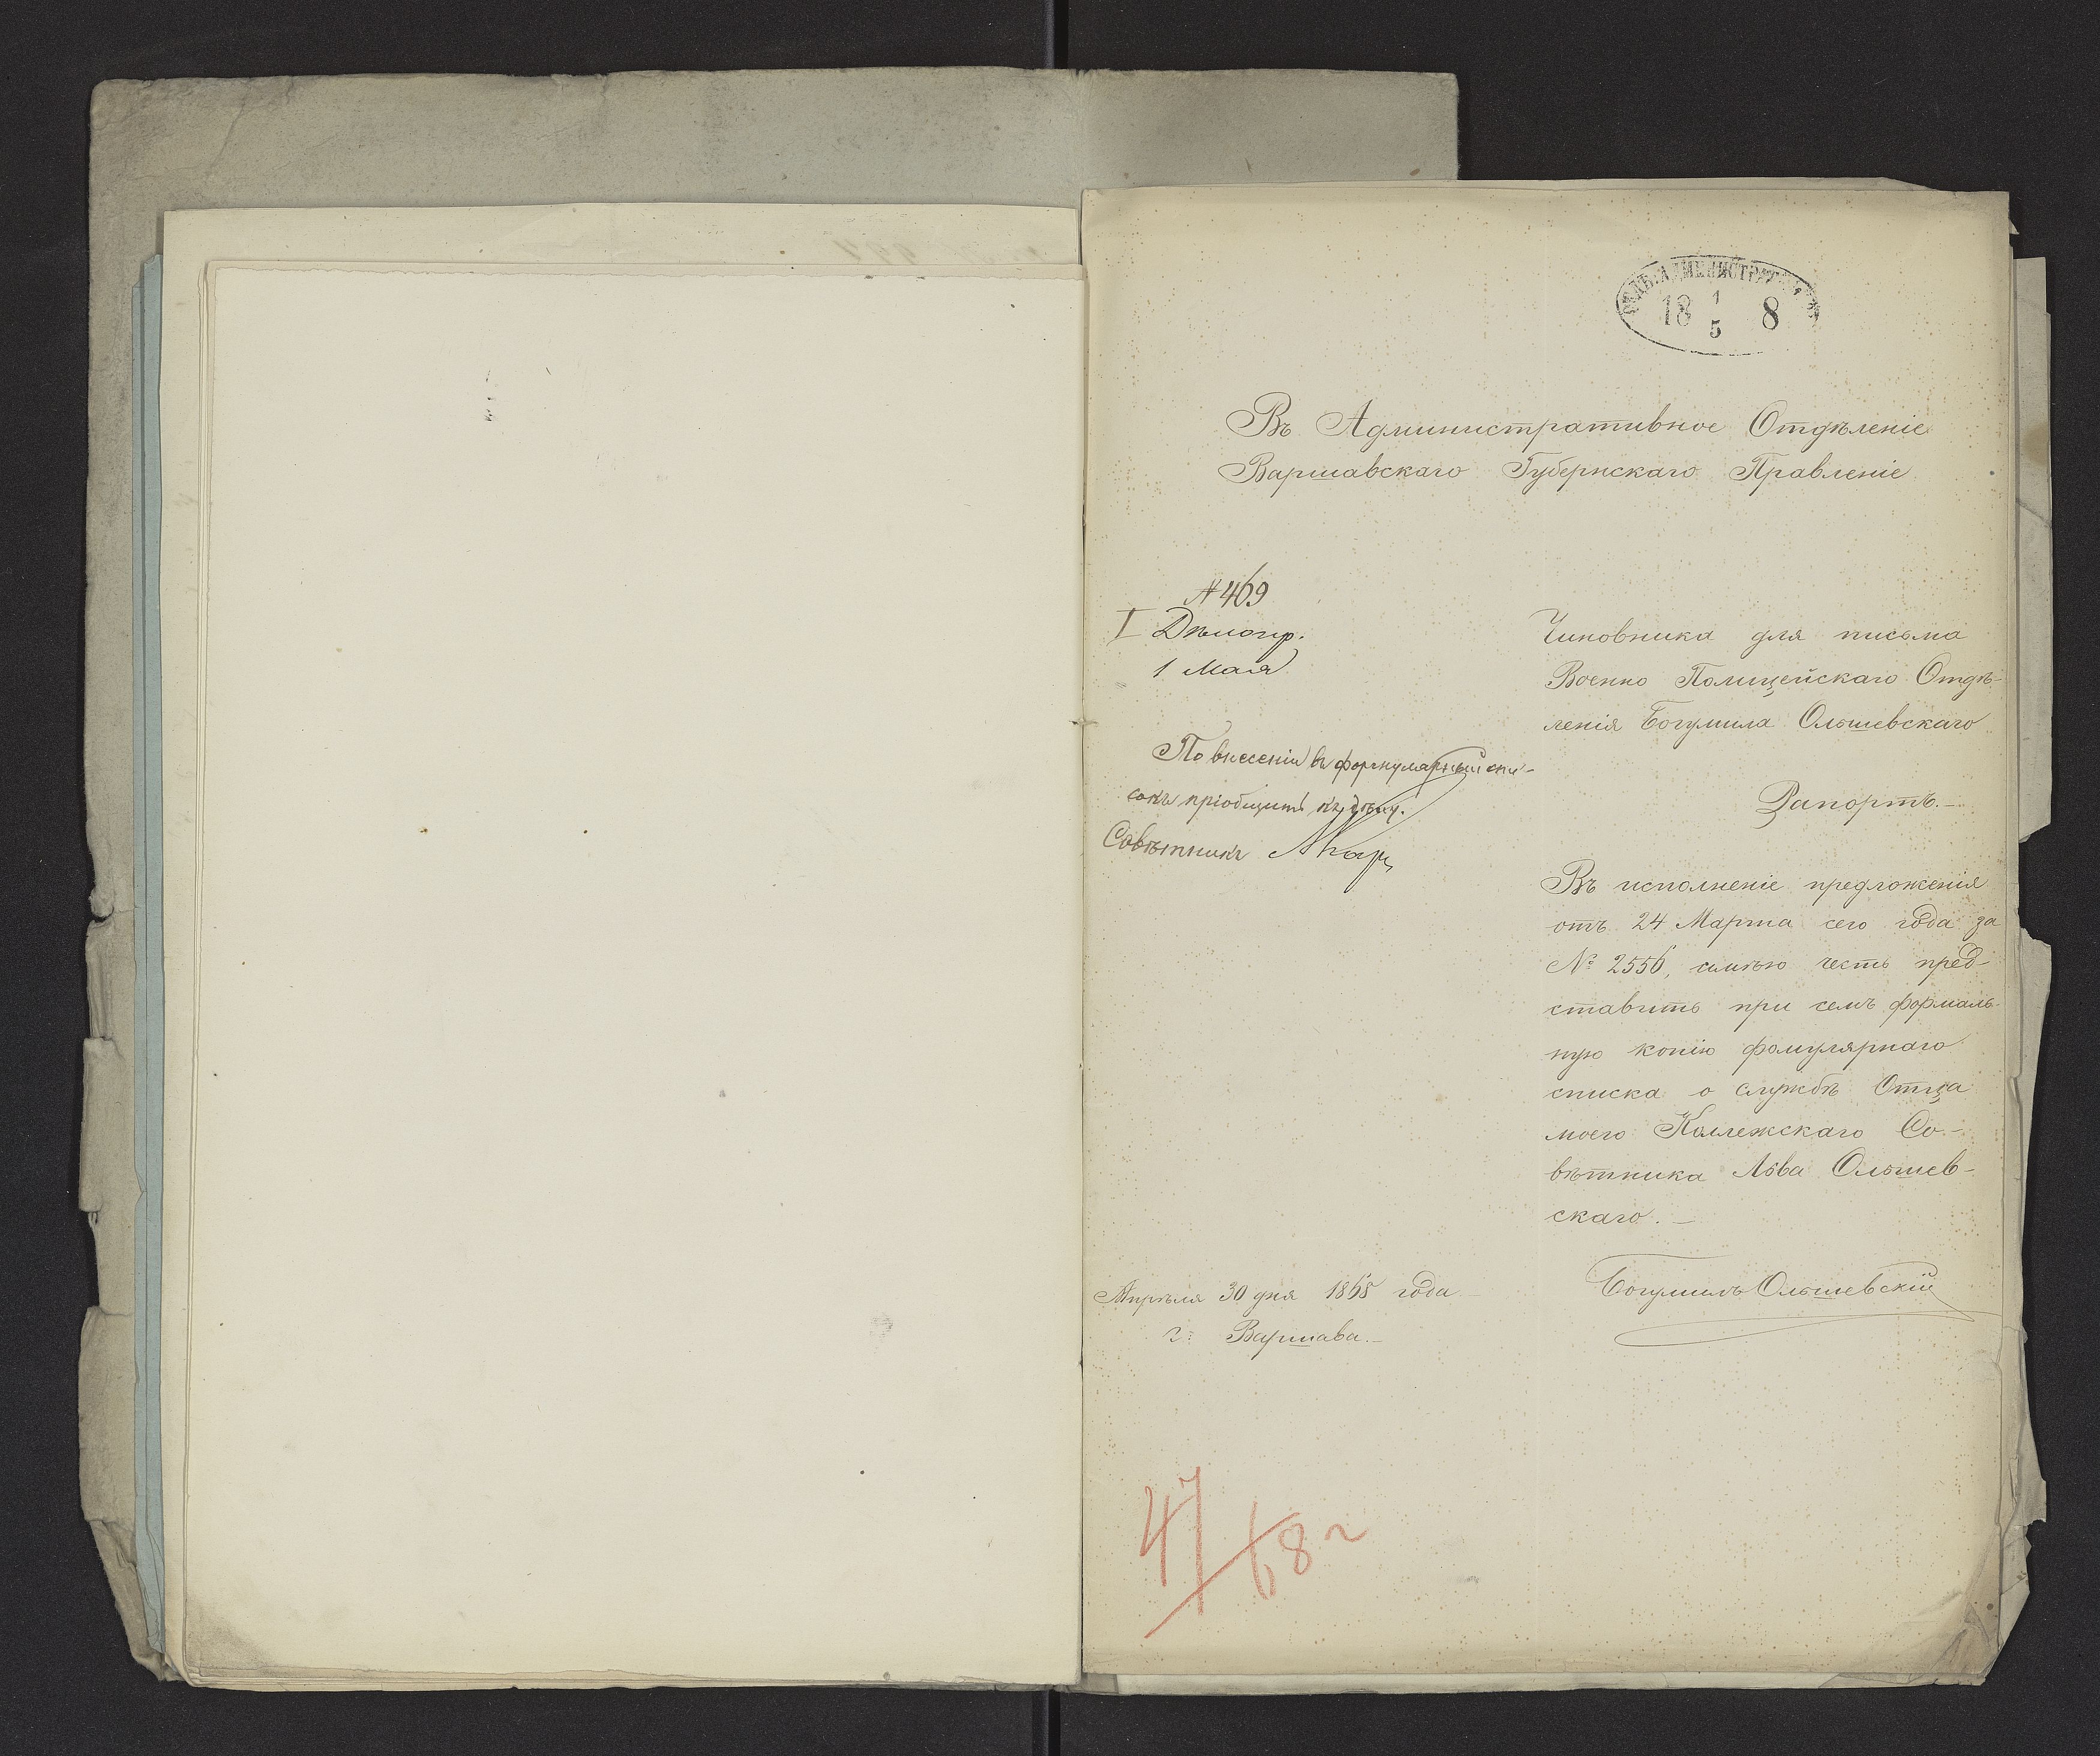 ОТДѢЛ. АДМИНИСТРАТ
18 1/5 8
Въ Административное Отдѣленіе
Варшавскаго Губернскаго Правленіе
№ 469
I Дѣлопр.
1 Мая
По внесеніи въ формулярный спи-
сокъ пріобщить къ дѣлу.
Совѣтникъ
Чиновника для письма
Военно Полицейскаго Отдѣ-
ленія Богумила Ольшевскаго
Рапортъ.-
Въ исполненіе предложенія
отъ 24 Марта сего года за
№ 2556, имѣю честь пред-
ставить при семъ формаль-
ную копію фомулярнаго
списка о службѣ Отца
моего Коллежскаго Со-
вѣтника Льва Ольшев-
скаго.-
Богумилъ Ольшевскій
Апрѣля 30 дня 1868 года
г: Варшава.-
47/68 г